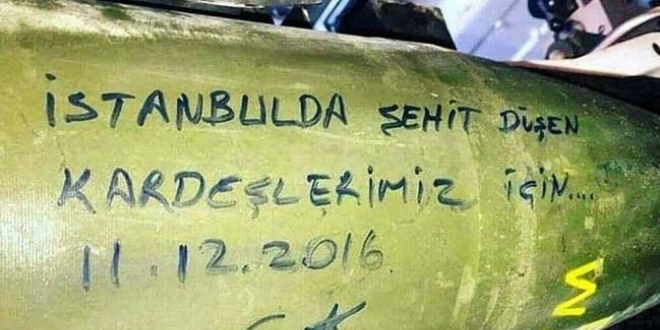 İSTANBULDA ŞEHİT DÜŞEN
KARDEŞLERİMİZ İÇİN....
11.12.2016